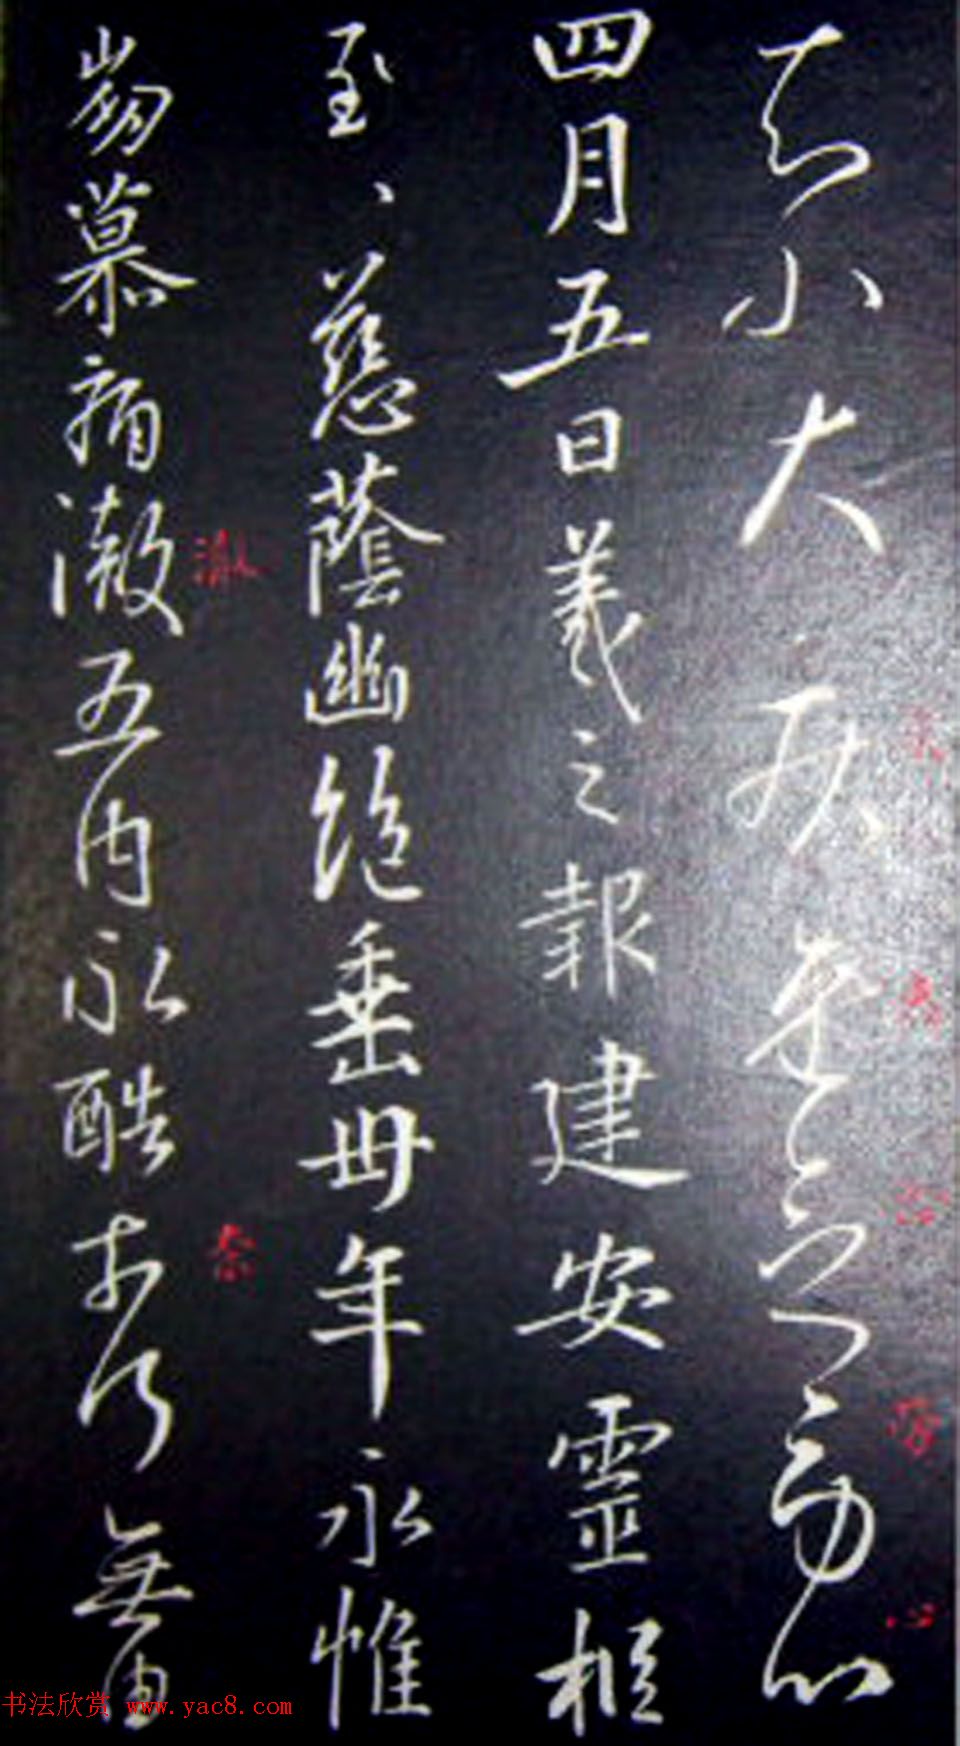 知小大疾 勞心
四月五日羲之報建安靈柩
至、慈蔭幽絕垂卅年永惟
崩慕痛澈五內永酷奈何無由
澈
奈
勞
心
书法欣赏 www.yac8.com